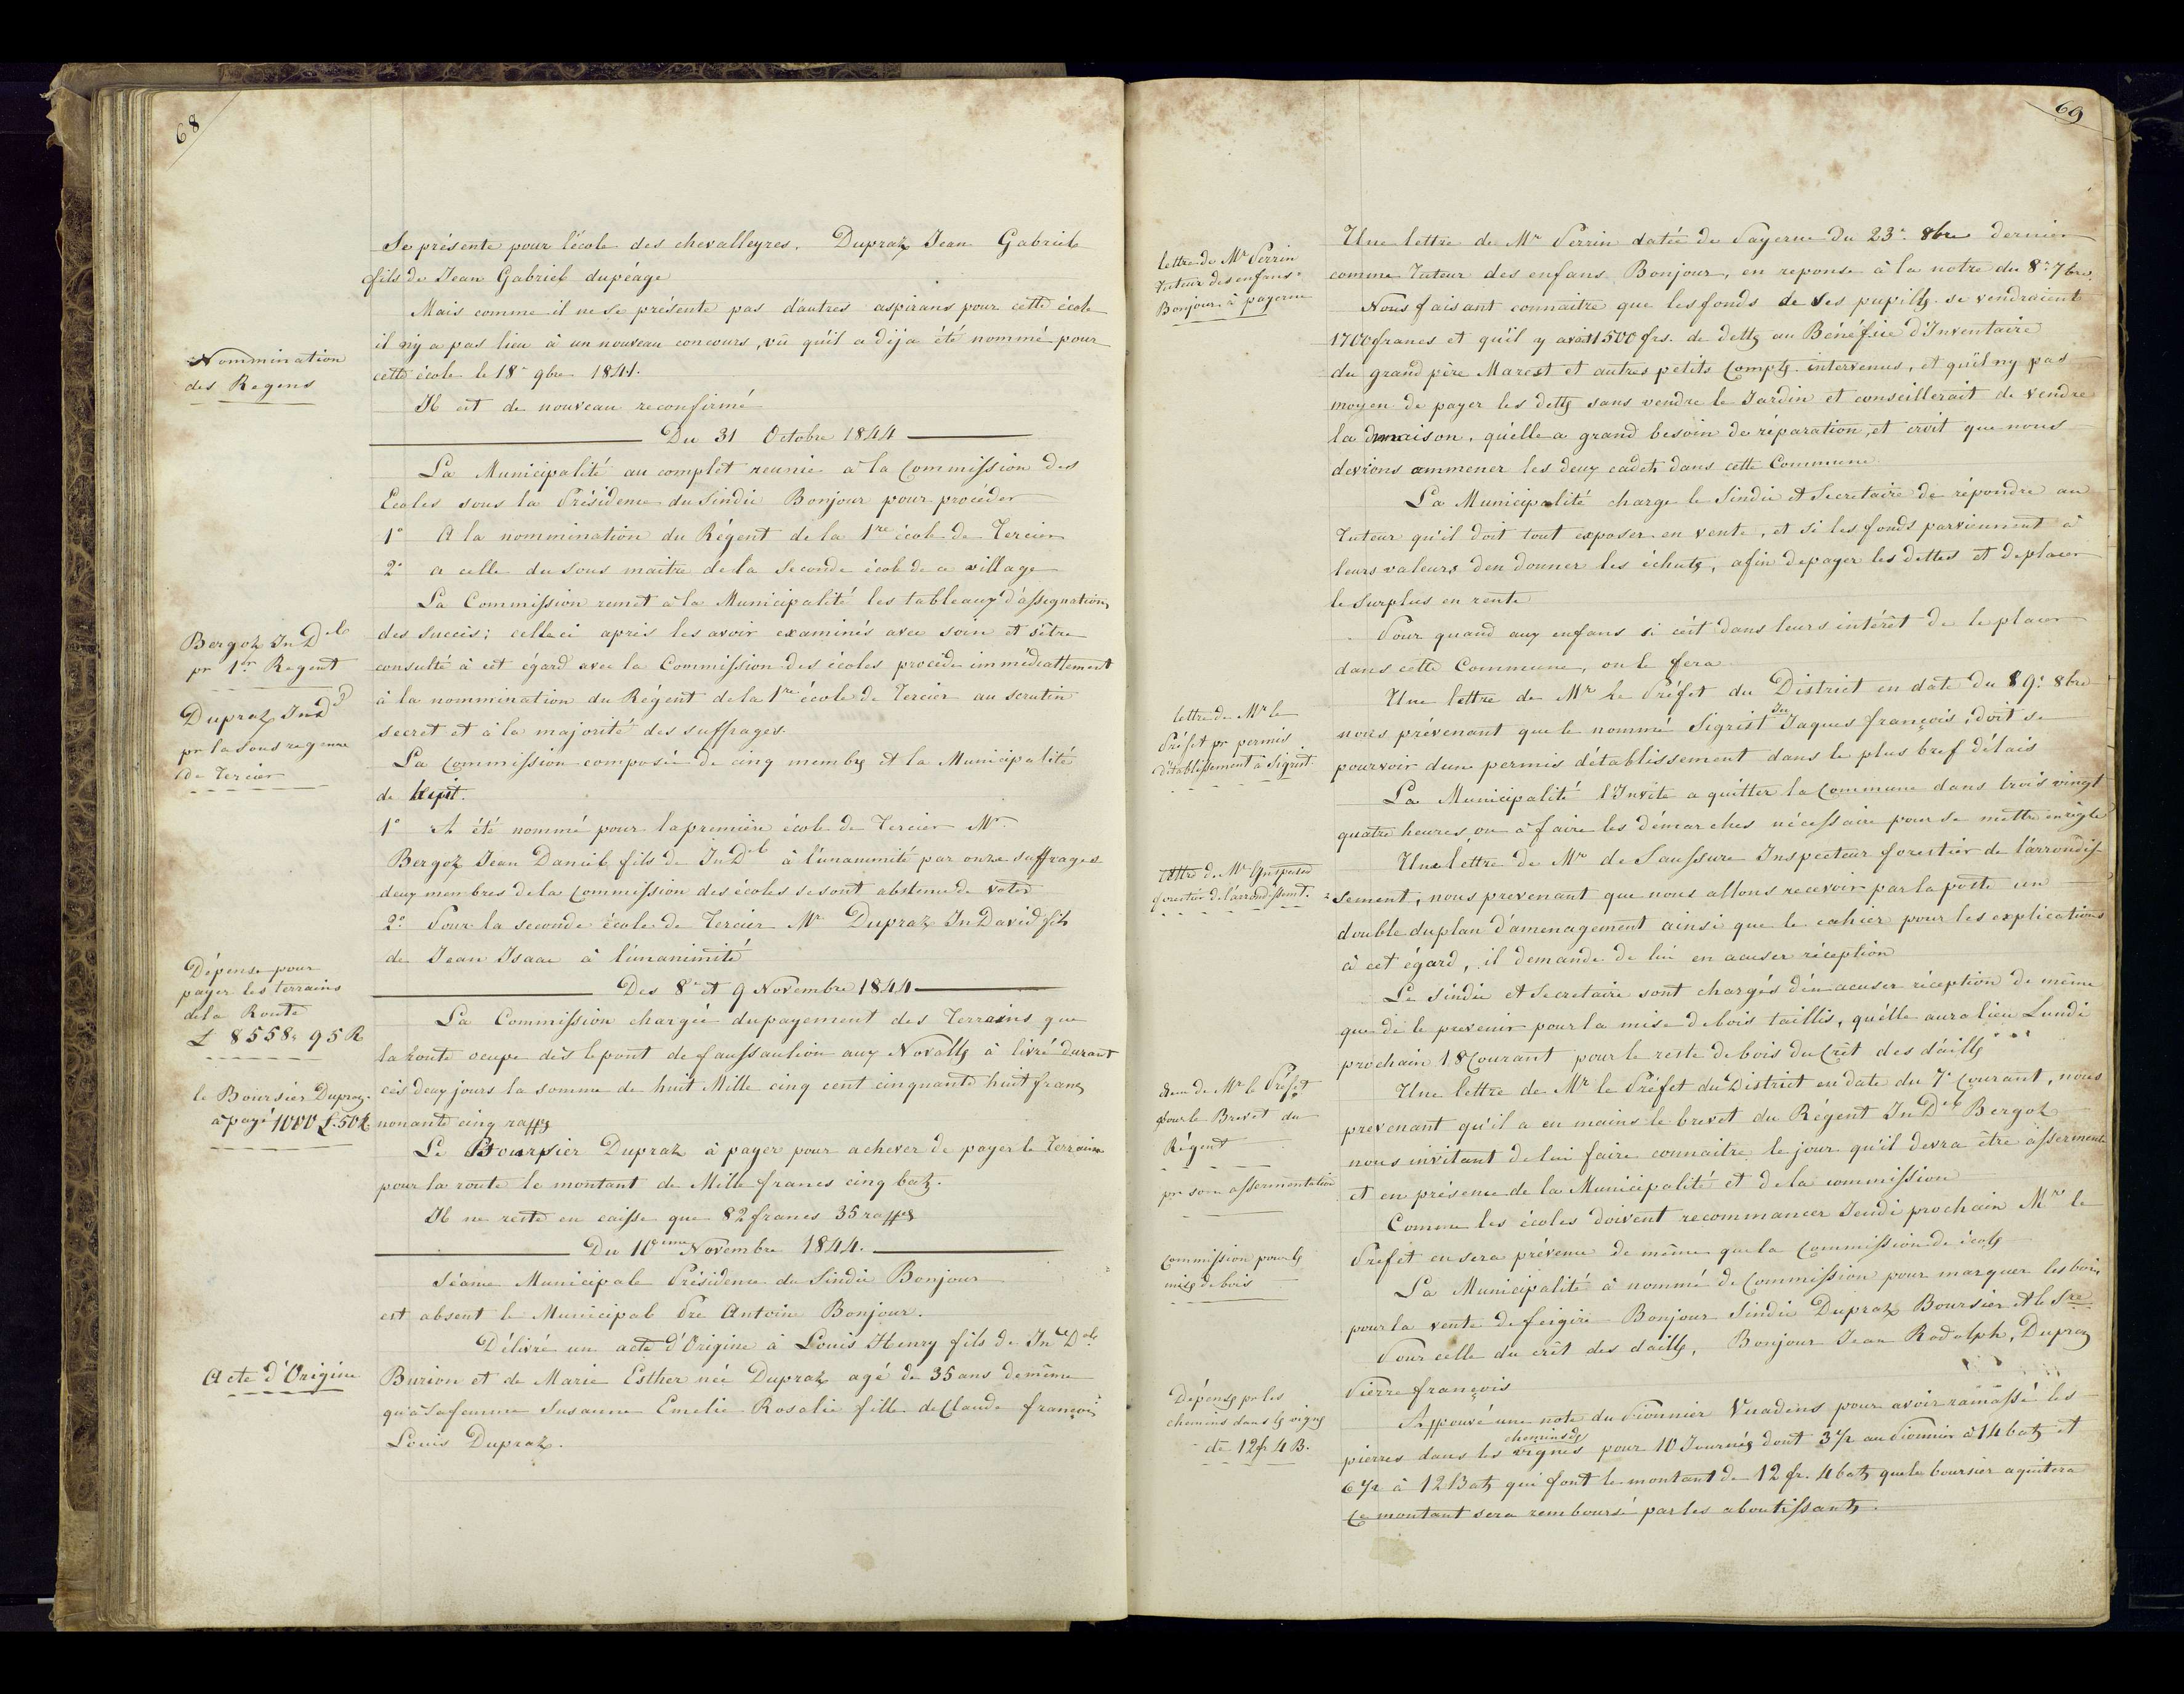 68
Se présente pour l'école des chevalleyres. Dupraz Jean Gabriel
fils de Jean Gabriel dupéage
Mais comme il ne se présente pas d'autres aspirans pour cette école
il n'y a pas lieu à un nouveau concours, vû qu'il a déja été nommé pour
cette école le 18e 9bre 1841.
Nommination
des Regens
Il est de nouveau reconfirmé
Du 31 Octobre 1844
La Municipalité au complet reunie à la Commission des
Ecoles sous la Présidence du Sindic Bonjour pour procéder
1° A la nommination du Régent de la 1re école de Tercier
2° a celle du sous maitre de la seconde école de ce village
La Commission remet à la Municipalité les tableaux d'assignations
des succès; celle ci après les avoir examinés avec soin et s'être
consulté à cet égard avec la Commission des écoles procède immédiattement
à la nommination du Régent de la 1re école de Tercier au scrutin
secret et à la majorité des suffrages.
Bergoz Jn Del
pr 1er Regent
Dupraz Jn Dd
pr la sous regence
de Tercier
La Commission composée de cinq membres et la Municipalité
de
1° A été nommé pour la première école de Tercier Mr
Bergoz Jean Daniel fils de Jn Del à l'unanimité par onze suffrages
deux membres de la Commission des écoles se sont abstenu de voter
2° Pour la seconde école de Tercier Mr Dupraz Jn David fils
de Jean Isaac à l'unanimité
Des 8e et 9 Novembre 1844
Dépense pour
payer les terrains
de la Route
L 8558, 95 R
La Commission chargée du payement des Terrains que
la Route ocupe dès le pont de faussaulion aux Novalles à livré durant
ces deux jours la somme de huit Mille cinq cent cinquante huit francs
nonante cinq rappes
le Boursier Dupraz
à payé 1000 L. 50 R
Le Boursier Dupraz à payer pour achever de payer le Terrain
pour la route le montant de Mille francs cinq batz.
Il ne reste en caisse que 82 francs 35 rappes
Du 10ieme Novembre 1844.
Séance Municipale Présidence du Sindic Bonjour
est absent le Municipal Pre Antoine Bonjour.
Acte d'Origine
Délivré un acte d'Origine à Louis Henry fils de Jn Del
Burion et de Marie Esther née Dupraz agé de 35 ans de même
qu'à sa femme Susanne Emelie Rosalie fille de Claude François
Louis Dupraz.
69
lettre de Mr Perrin
Tuteur des enfans
Bonjour à payerne
Une lettre de Mr Perrin datée de Payerne du 23e 8bre dernier
comme Tuteur des enfans Bonjour, en reponse à la notre du 8e 7bre
Nous faisant connaitre que les fonds de ses pupilles se vendraient
1700 francs et qu'il y avait 1500 frs. de dettes au Bénéfice d'Inventaire
du grand père Marest et autres petits Comptes intervenus, et qu'il n'y pas
moyen de payer les dettes sans vendre le Jardin et conseillerait de vendre
la maison, qu'elle a grand besoin de réparation, et croit que nous
devrions ammener les deux cadets dans cette Commune
La Municipalité charge le Sindic et Secretaire de répondre au
Tuteur qu'il doit tout exposer en vente, et si les fonds parviennent à
leurs valeurs d'en donner les échutes, afin de payer les dettes et de placer
le surplus en rente
Pour quand aux enfans si c'est dans leurs intérêt de le placer
dans cette Commune, on le fera
lettre de Mr le
Préfet pr permis
d'établissement à Sigrist
Une lettre de Mr Le Préfet du District en date du 89e 8bre
nous prévenant que le nommé Sigrist Jn Jaques françois, doit se
pourvoir d'une permis d'établissement dans le plus bref délais
La Municipalité l'Invite a quitter la Commune dans trois vingt
quatre heures, ou à faire les démarches nécessaire pour se mettre en règle
lettre de Mr l'Inspecteur
forestier de l'arrondissmt.
Une lettre de Mr de Saussure Inspecteur forestier de l'arrondis
sement, nous prevenant que nous allons recevoir par la poste un
double du plan d'amenagement ainsi que le cahier pour les explications
à cet égard, il demande de lui en acuser réception
Le Sindic et Secretaire sont chargés d'en acuser réception de même
que de le prevenir pour la mise de bois taillis, qu'elle aura lieu Lundi
prochain 18 Courant pour le reste de bois du Crêt des d'ailles
Idem de Mr le Préfet
pour le Brevet du
Régent
pr son assermentation
Une lettre de Mr le Préfet du District en date du 7e Courant, nous
prevenant qu'il a en mains le brevet du Régent Jn Del Bergoz
nous invitant de lui faire connaitre le jour qu'il devra être assermenté
et en présence de la Municipalité et de la commission
Comme les écoles doivent recommancer Jeudi prochain Mr le
Prefet en sera prévenu de même que la Commission des écoles
Commission pour les
mises de bois
La Municipalité à nommé de Commission pour marquer les bois
pour la vente de feigire Bonjour Sindic Dupraz Boursier et le Sre
Pour celle du crêt des d'ailles, Bonjour Jean Rodolph, Dupraz
Pierre françois
Dépenses pr les
chemins dans les vignes
de 12 fr 4 B.
Appouvé une note du Pionnier Vuadens pour avoir ramassé les
pierres dans les chemins des vignes pour 10 Journées dont 3 1/2 au Pionnier à 14 batz et
6 1/2 à 12 Batz qui font le montant de 12 fr. 4 batz que le boursier aquitera
Ce montant sera remboursé par les aboutissants